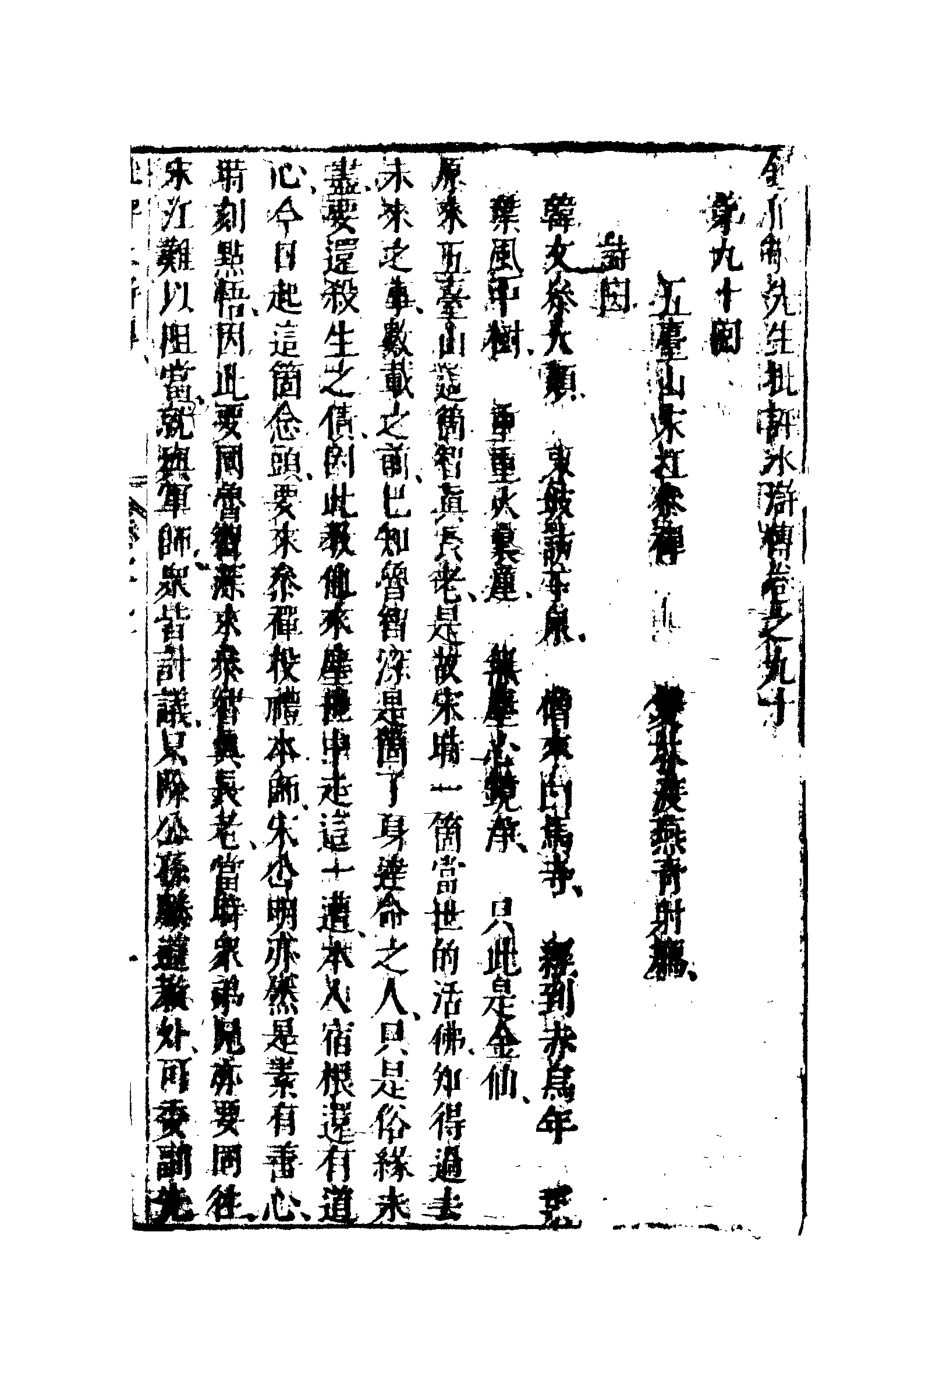 李卓吾先生批評水滸傳卷之九十
第九十回
五臺山宋江參禪　雙林渡燕青射鴈
詩曰
韓文參大顛　東坡訪玉泉　僧來白馬寺　經到赤烏年　葉
葉風中樹　重重火裏蓮　無塵心鏡凈　只此是金仙
原來五臺山這箇智真長老、是故宋時一箇當世的活佛、知得過去
未來之事、數載之前、已知魯智深是箇了身達命之人、只是俗緣未
盡、要還殺生之債、因此教他來塵世中走這一遭、本人宿根、還有道
心、今日起這箇念頭、要來參禪投禮本師、宋公明亦然是素有善心、
時刻點悟、因此要同魯智深來參智真長老、當時衆弟兄亦要同往、
宋江難以阻當、就與軍師衆皆計議、只除公孫勝道教外、可委副先